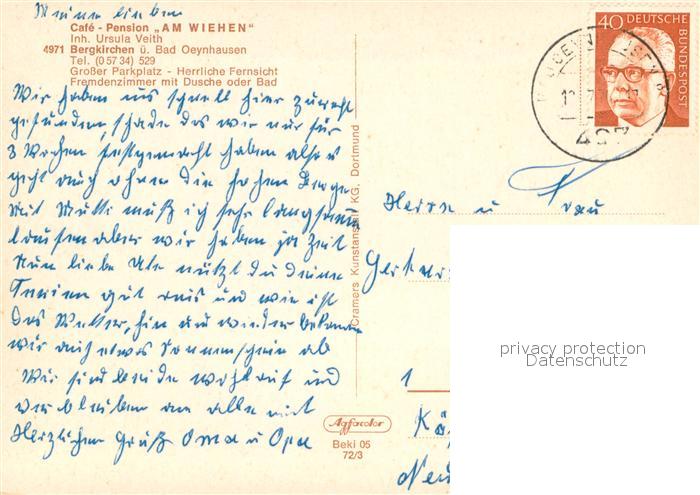 Meine lieben
Café - Pension „AM WIEHEN"
Inh. Ursula Veith
4971 Bergkirchen ü. Bad Oeynhausen
Tel. (0 57 34) 529
Großer Parkplatz - Herrliche Fernsicht
Fremdenzimmer mit Dusche oder Bad
Wir haben uns schnell hier zurecht
gefunden, schade das wir nur für
3 Wochen festgemacht haben also
geht auch ohne die hohen Berge
Mit Mutti muß ich sehr langsam
laufen aber wir haben ja Zeit
Nun liebe Ute nützt du deine
Ferien gut aus und wie ist
das Wetter, hin und wieder bekommen
wir auch etwas Sonnenschein ab
Wir sind beide wohlauf und
verbleiben an alle mit
Herzlichen Gruß Oma u Opa
Cramers Kunstanstalt KG. Dortmund
Agfacolor
Beki 05
72/3
40 DEUTSCHE
BUNDESPOST
497
Herrn u Frau
1
privacy protection
Datenschutz